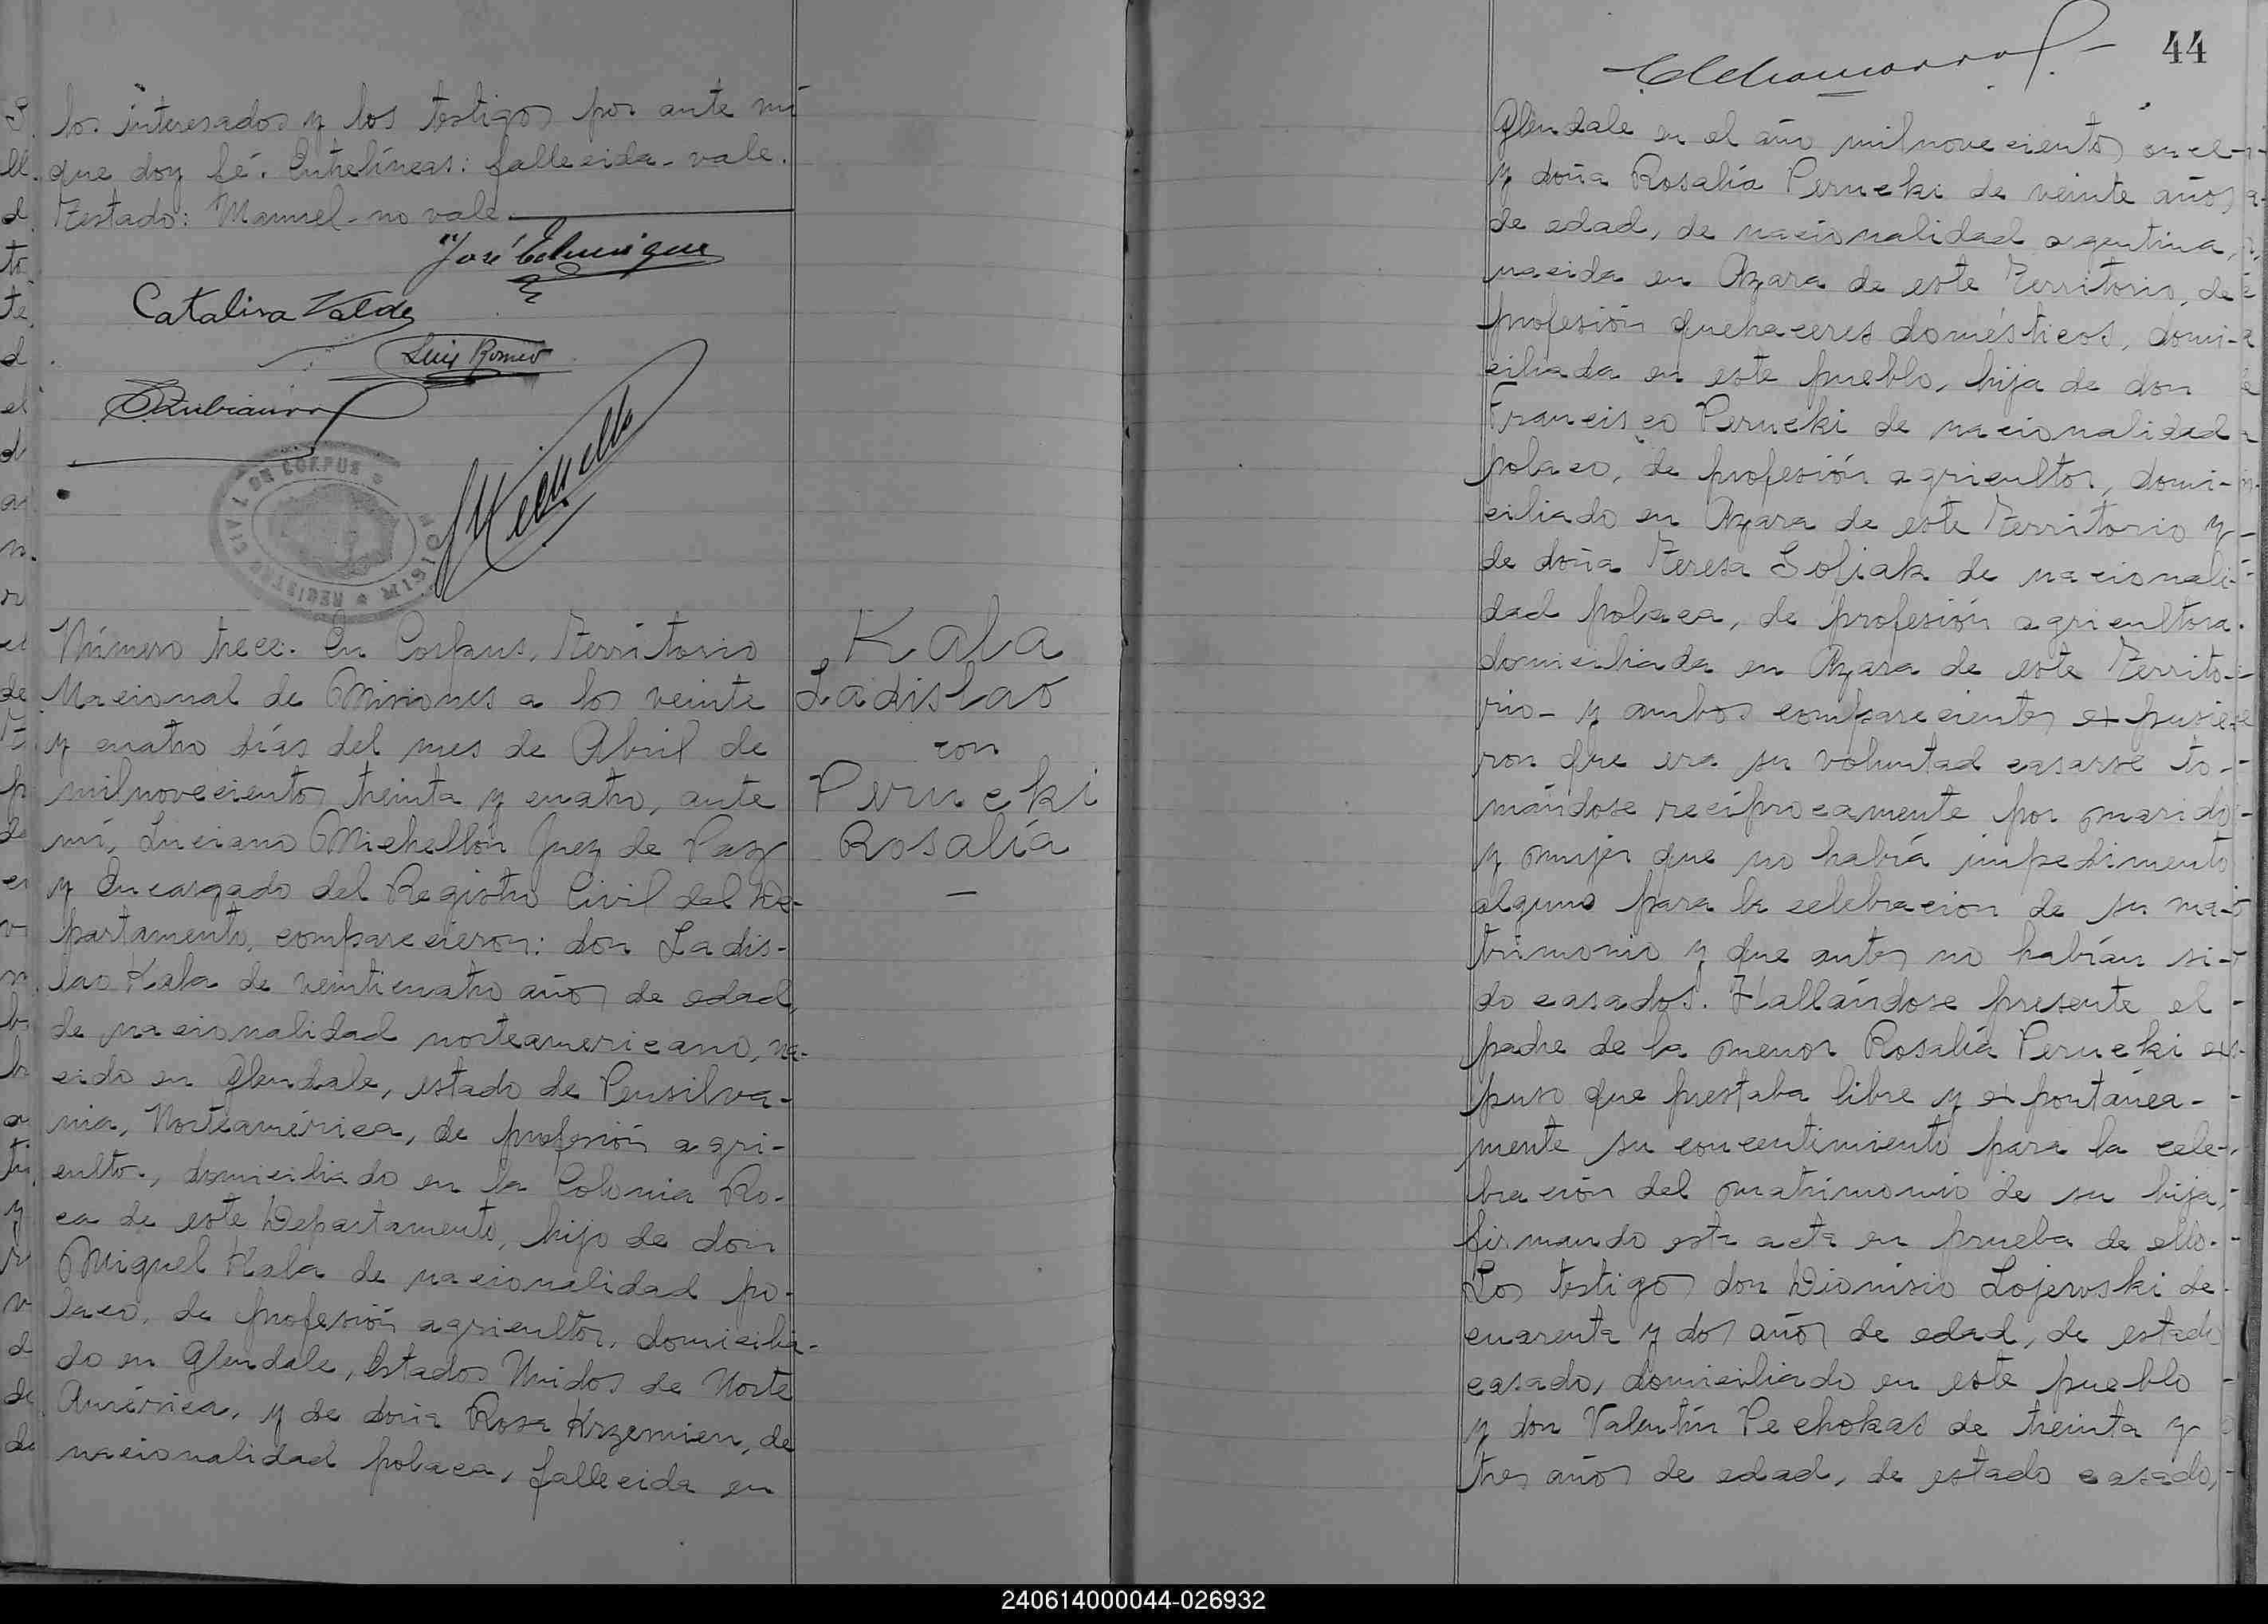 los interesados y los testigos por ante mí
que doy fé. Entrelíneas: fallecida - vale.
Testado: Manuel - no vale.
Catalina Valdez
Luis Romeo
REGISTRO CIVIL DE CORPUS
Número trece. En Corpus, Territorio
Nacional de Misiones a los veinte
y cuatro días del mes de Abril de
mil novecientos treinta y cuatro, ante
mí, Luciano Michellón Juez de Paz
y Encargado del Registro Civil del De-
partamento, comparecieron: don Ladis-
lao Kala de veinticuatro años de edad,
de nacionalidad norteamericano, na-
cido en Glendale, estado de Pensilva-
nia, Norteamérica, de profesión agri-
cultor, domiciliado en la Colonia Ro-
ca de este Departamento, hijo de don
Miguel Kala de nacionalidad po-
laco, de profesión agricultor, domicilia-
do en Glendale, Estados Unidos de Norte
América, y de doña Rosa Krzemien, de
nacionalidad polaca, fallecida en
Kala
Ladislao
con
Perucki
Rosalía
44
Glendale en el año mil novecientos once
y doña Rosalía Perucki de veinte años
de edad, de nacionalidad argentina,
nacida en Azara de este Territorio, de
profesión quehaceres domésticos, domi-
ciliada en este pueblo, hija de don
Francisco Perucki de nacionalidad
polaco, de profesión agricultor, domi-
ciliado en Azara de este Territorio y
de doña Teresa Sofiak de nacionali-
dad polaca, de profesión agricultora.
domiciliada en Azara de este Territo-
rio - y ambos comparecientes expusie-
ron que era su voluntad casarse to-
mándose recíprocamente por marido
y mujer que no había impedimento
alguno para la celebración de su ma-
trimonio y que antes no habían si-
do casados. Hallándose presente el
padre de la menor Rosalía Perucki ex-
puso que prestaba libre y expontánea-
mente su concentimiento para la cele-
bración del matrimonio de su hija,
firmando esta acta en prueba de ello.
Los testigos don Dionisio Lojewski de
cuarenta y dos años de edad, de estado
casado, domiciliado en este pueblo
y don Valentín Pechokas de treinta y
tres años de edad, de estado casado,
240614000044-026932